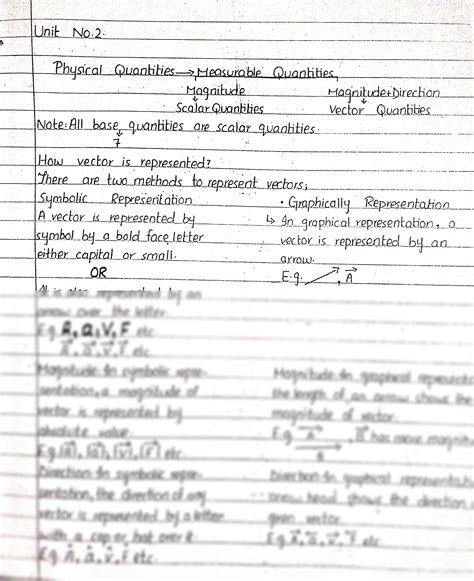 Unit No.2.
Physical Quantities → Measurable Quantities,
Magnitude Magnitude+Direction
↓ ↓
Scalar Quantities Vector Quantities
Note: All base quantities are scalar quantities.
↓
7
How vector is represented?
There are two methods to represent vectors;
Symbolic Representation • Graphically Representation
A vector is represented by ↳ In graphical representation, a
symbol by a bold face letter vector is represented by an
either capital or small. arrow.
OR E.g. , A⃗
It is also represented by an
arrow over the letter.
E.g A, a, V, F etc.
A⃗, a⃗, v⃗, F⃗ etc.
Magnitude In symbolic repre- Magnitude In graphical represent
sentation, a magnitude of the length of an arrow shows the
vector is represented by magnitude of vector.
absolute value. E.g A⃗, B⃗ has more
B
E.g |A⃗|, |a⃗|, |v⃗|, |F⃗| etc.
Direction In symbolic repre- Direction In graphical
sentation, the direction of any head shows the direction
vector is represented by a letter given vector
with a cap or hat over it. E.g A⃗, a⃗, v⃗, F⃗ etc.
E.g etc.